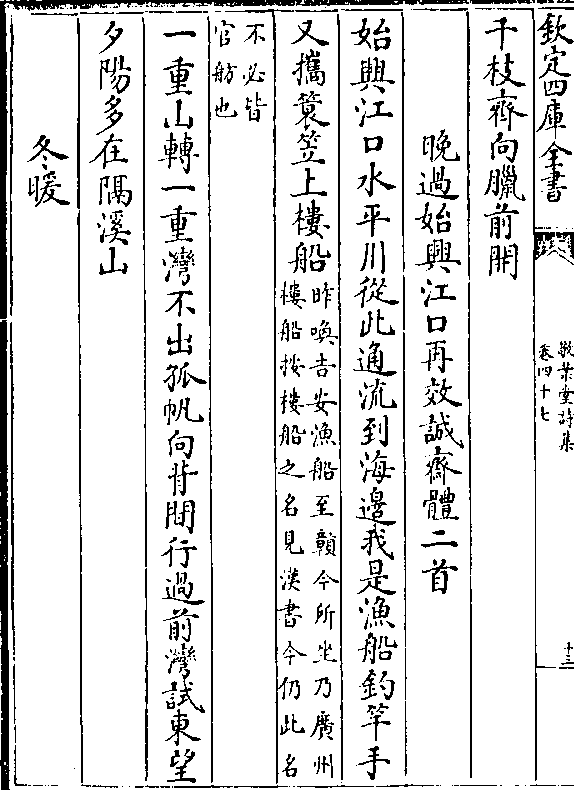 欽定四庫全書
敬業堂詩集
卷四十七
十三
千枝齊向臘前開
晚過始興江口再效誠齋體二首
始興江口水平川從此通流到海邊我是漁船釣竿手
又攜簑笠上樓船
昨喚吉安漁船至贛今所坐乃廣州
樓船按樓船之名見漢書今仍此名
不必皆
官舫也
一重山轉一重灣不出孤帆向背間行過前灣試東望
夕陽多在隔溪山
冬暖